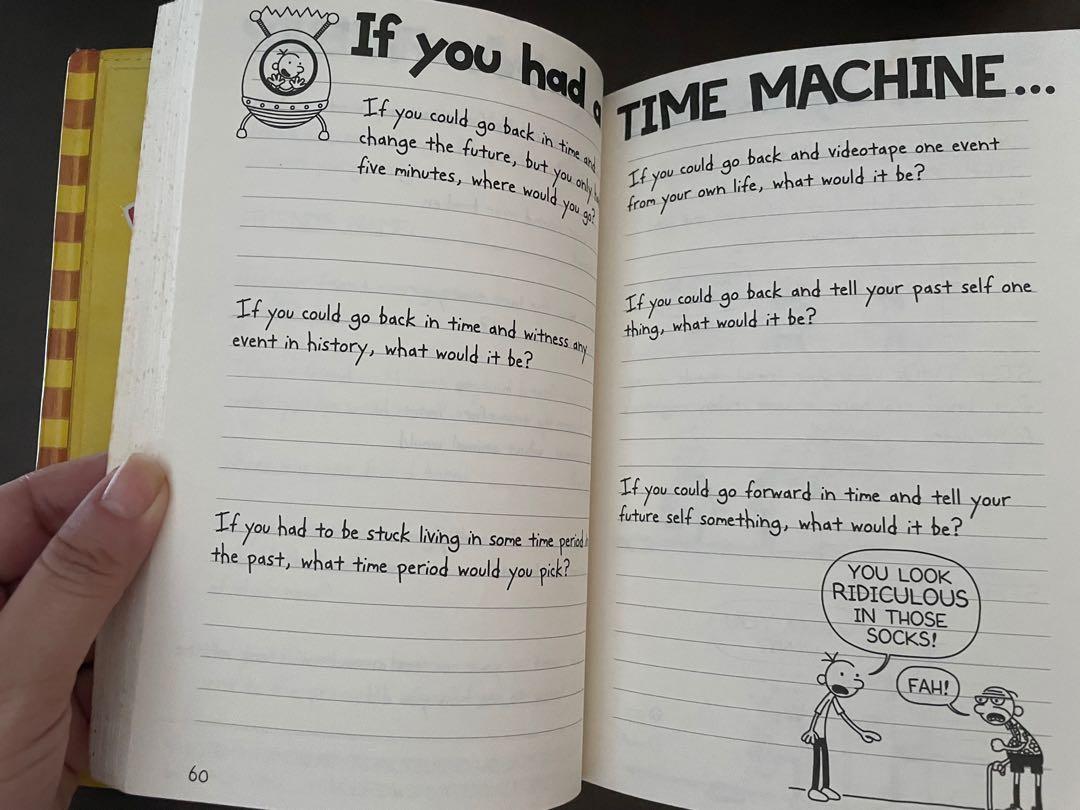 If you had a
If you could go back in time and
change the future, but you only
five minutes, where would you go?
If you could go back in time and witness any
event in history, what would it be?
If you had to be stuck living in some time period
the past, what time period would you pick?
60
TIME MACHINE...
If you could go back and videotape one event
from your own life, what would it be?
If you could go back and tell your past self one
thing, what would it be?
If you could go forward in time and tell your
future self something, what would it be?
YOU LOOK
RIDICULOUS
IN THOSE
SOCKS!
FAH!